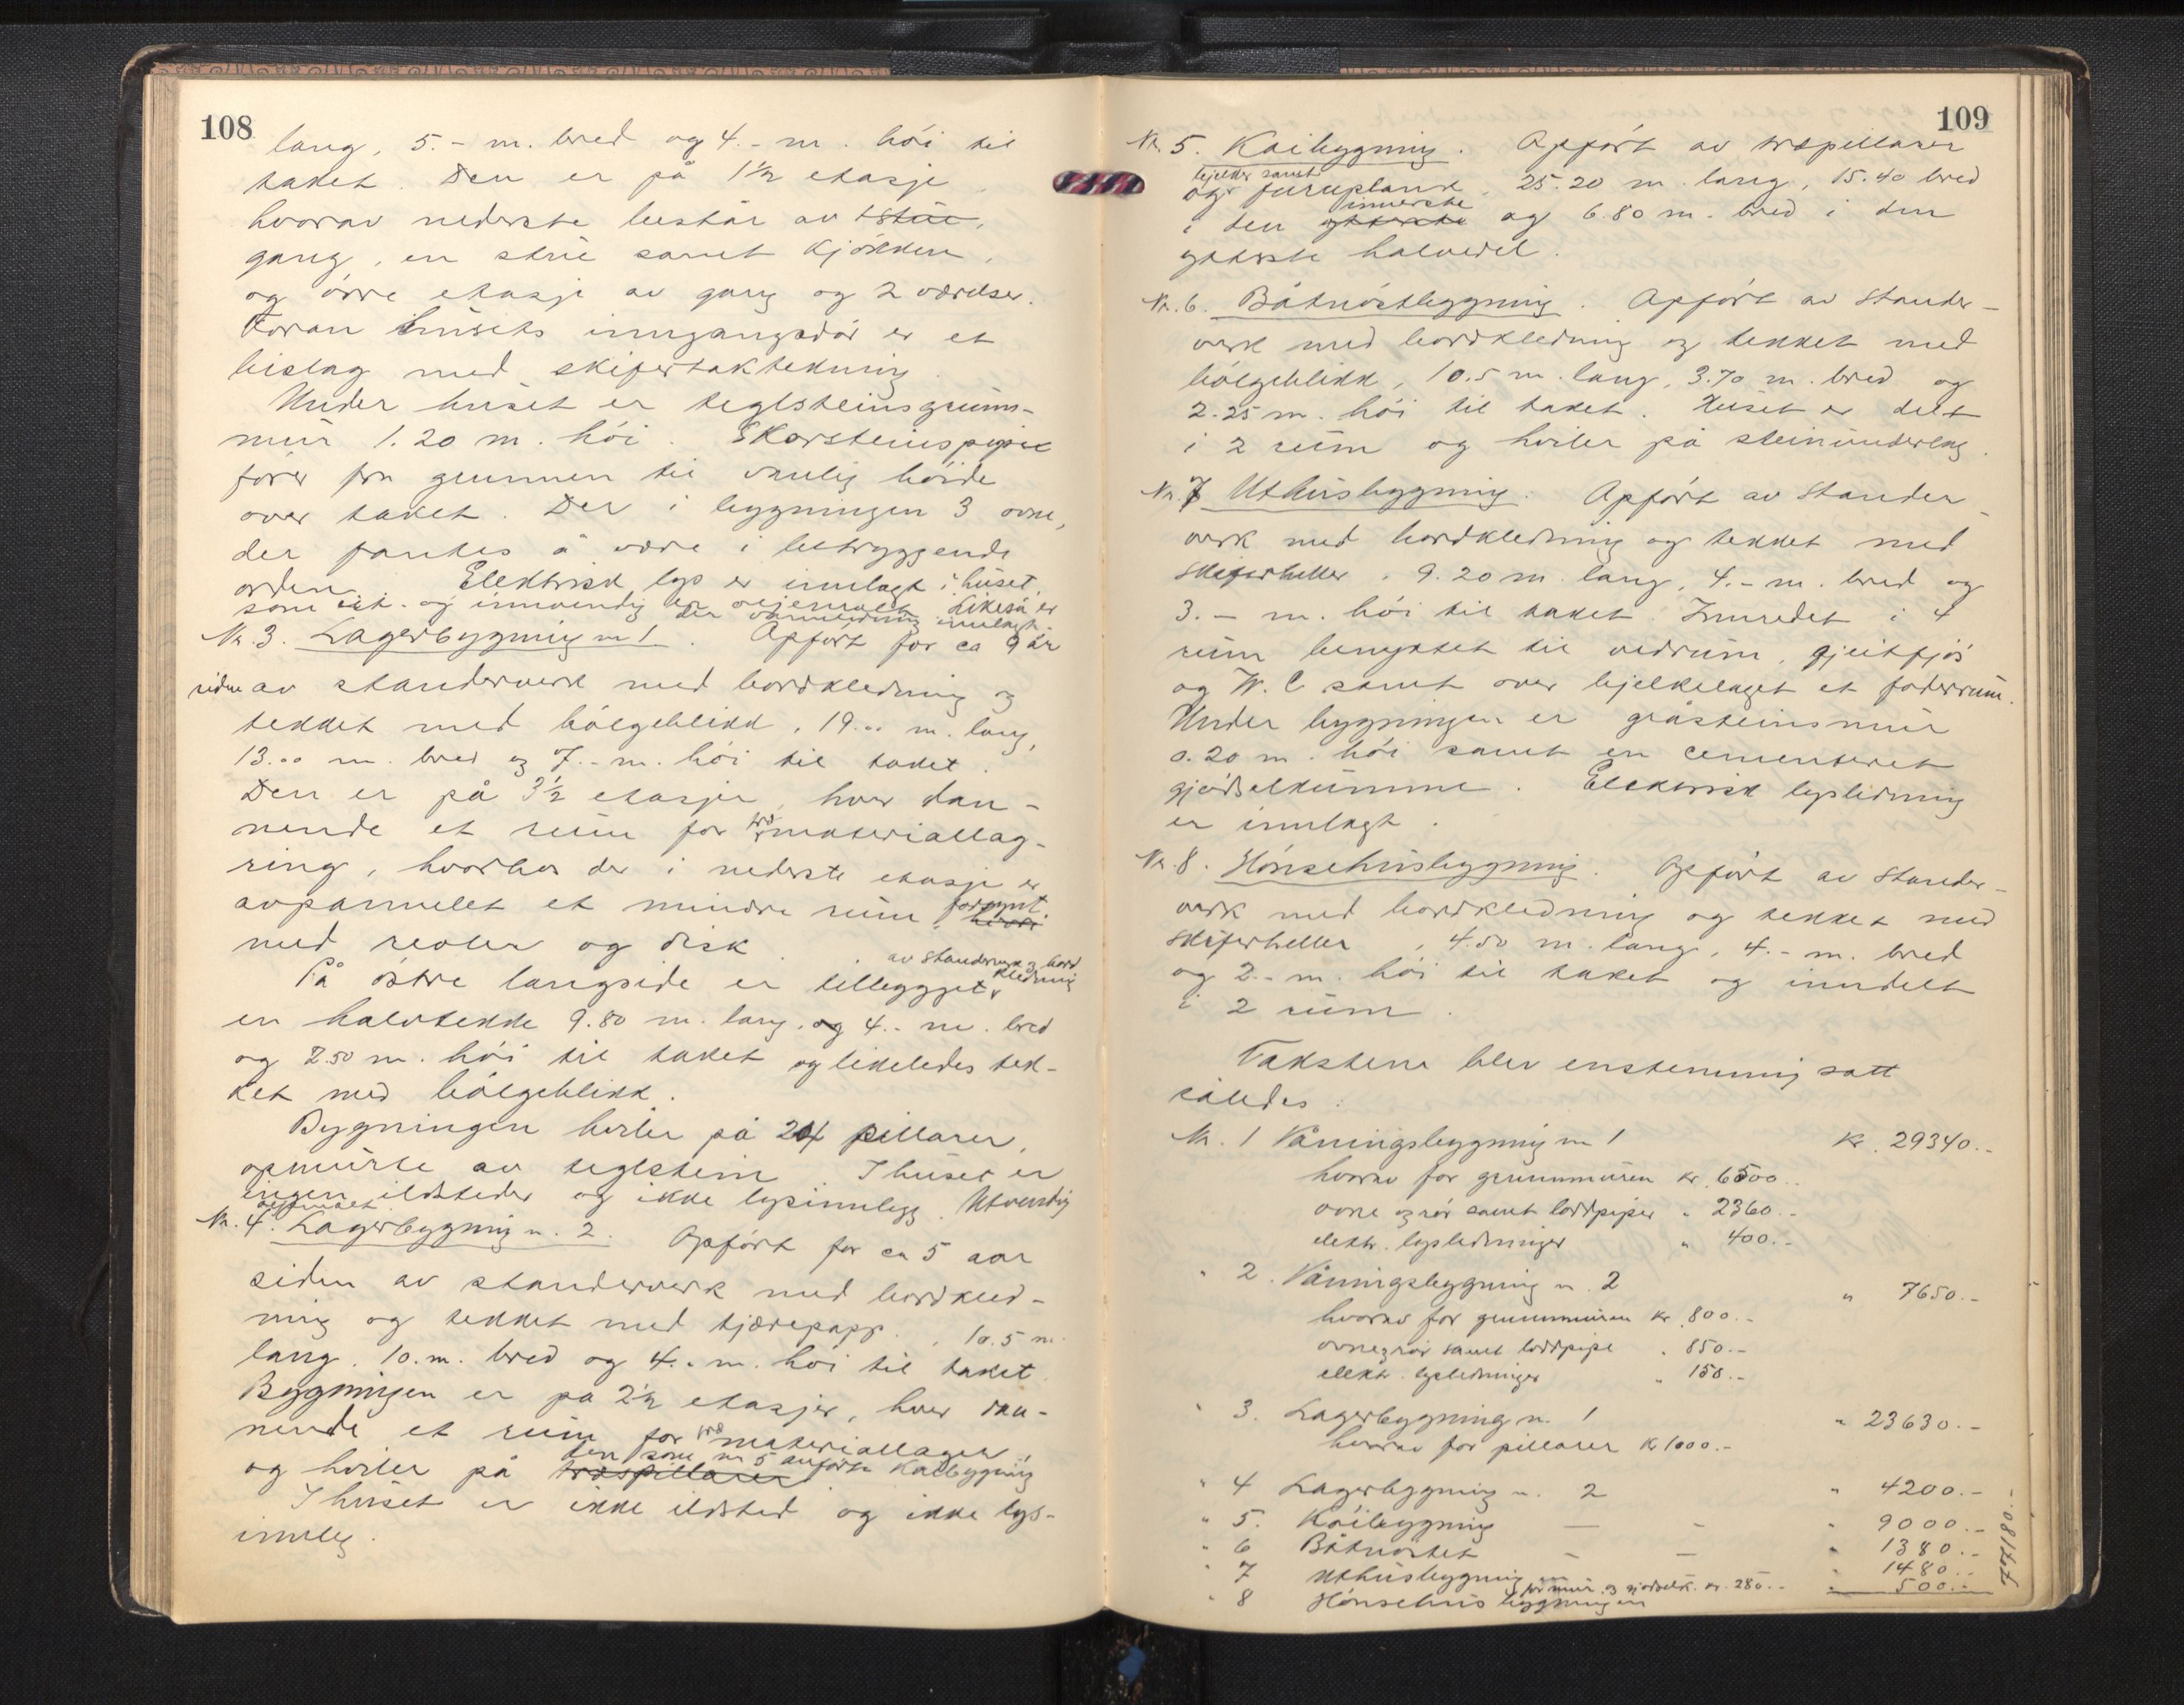 108
lang, 5.- m. bred og 4.- m. hói til
taket. Den er på 1½ etasje,
hvorav nederste består av 1 stue,
gang, en stue samt kjökken,
og övre etasje av gang og 2 værelser.
Foran husets inngangsdör er et
bislag med skifertaktekning.
Under huset er teglsteinsgrunn-
mur 1.20 m. hói. Skorsteinspipe
förer fra grunnen til vanlig höide
over taket. Der i bygningen 3 ovne,
der fantes å være i betryggende
orden. Elektrisk lys er innlagt i huset,
som ut- og innvendig er oljemalt. Likeså er
der vannledning innlagt.
Nr. 3. Lagerbygning nr 1. Opfört for ca 9 år
siden av standerverk med bordkledning og
tekket med bölgeblikk, 19.00 m. lang,
13.00 m. bred og 7.- m. hói til taket.
Den er på 3½ etasjer, hver dan-
nende et rum for materiallag-
ring, hvorhos der i nederste etasje er
avpannelet et mindre rum, forsynt
med reoler og disk.
av standerverk og bord
kledning
På östre langside er tillegget
en halvtekke 9.80 m. lang, og 4.- m. bred
og 2.50 m. hói til taket og likeledes tek-
ket med bölgeblikk.
Bygningen hviler på 24 pillarer,
opmurte av teglstein. I huset er
ingen ildsteder og ikke lysinnlegg. Utvendig
oljemalet.
Nr. 4. Lagerbygning n. 2. Opfört for ca 5 aar
siden av standerverk med bordkled-
ning og tekket med tjærepapp., 10.5 m.
lang, 10.m. bred og 4.- m. hói til taket.
Bygningen er på 2½ etasjer, hver dan-
nende et rum for materiallager,
den som nr 5 anförte Kaibygning
og hviler på træpillarer
I huset er ikke ildsted og ikke lys-
innleg.
109
Nr. 5. Kaibygning. Opfört av træpillarer
bjelker samt
og furuplank, 25.20 m. lang, 15.40 bred
innerste
i den ytterste og 6.80 m. bred i den
ytterste halvedel.
Nr. 6. Båtnöstbygning. Opfört av stander-
verk med bordkledning og tekket med
bölgeblikk, 10.5 m. lang, 3.70 m. bred og
2.25 m. hói til taket. Huset er delt
i 2 rum og hviler på steinunderlag.
Nr. 7 Uthusbygning. Opfört av stander-
verk med bordkledning og tekket med
skiferheller, 9.20 m. lang, 4.- m. bred og
3.- m. hói til taket. Innredet i 4
rum benyttet til vedrum, gjeitfjös
og W.C samt over bjelkelaget et foderrum.
Under bygningen er gråsteinsmur
0.20 m. hói samt en cementeret
gjödselkumme. Elektrisk lysledning
er innlagt.
Nr. 8. Hönsehusbygning. Opfört av stander-
verk med bordkledning og tekket med
skiferheller, 4.50 m. lang, 4.- m. bred
og 2.- m. hói til taket og inndelt
i 2 rum.
Takstene blev enstemmig satt
således:
Nr. 1 Våningsbygning nr 1 Kr. 29340.-
hvorav for grunnmuren kr. 6500.-
ovne og rör samt loddpiper " 2360.-
elektr. lysledninger " 400.-
" 2. Våningsbygning n. 2 " 7650.-
hvorav for grunnmuren kr. 800.-
ovne og rör samt loddpipe " 850.-
elektr. lysledninger " 150.-
" 3. Lagerbygning n. 1 " 23630.-
hvorav for pillarer kr 1000.-
" 4 Lagerbygning n. 2 " 4200.-
" 5. Kaibygning " 9000.-
" 6 Båtnöstet " 1380.-
" 7 Uthusbygning " 1480.-
for mur og gjödselk. kr. 280.-
" 8 Hönsehusbygningen " 500.-
77180.-